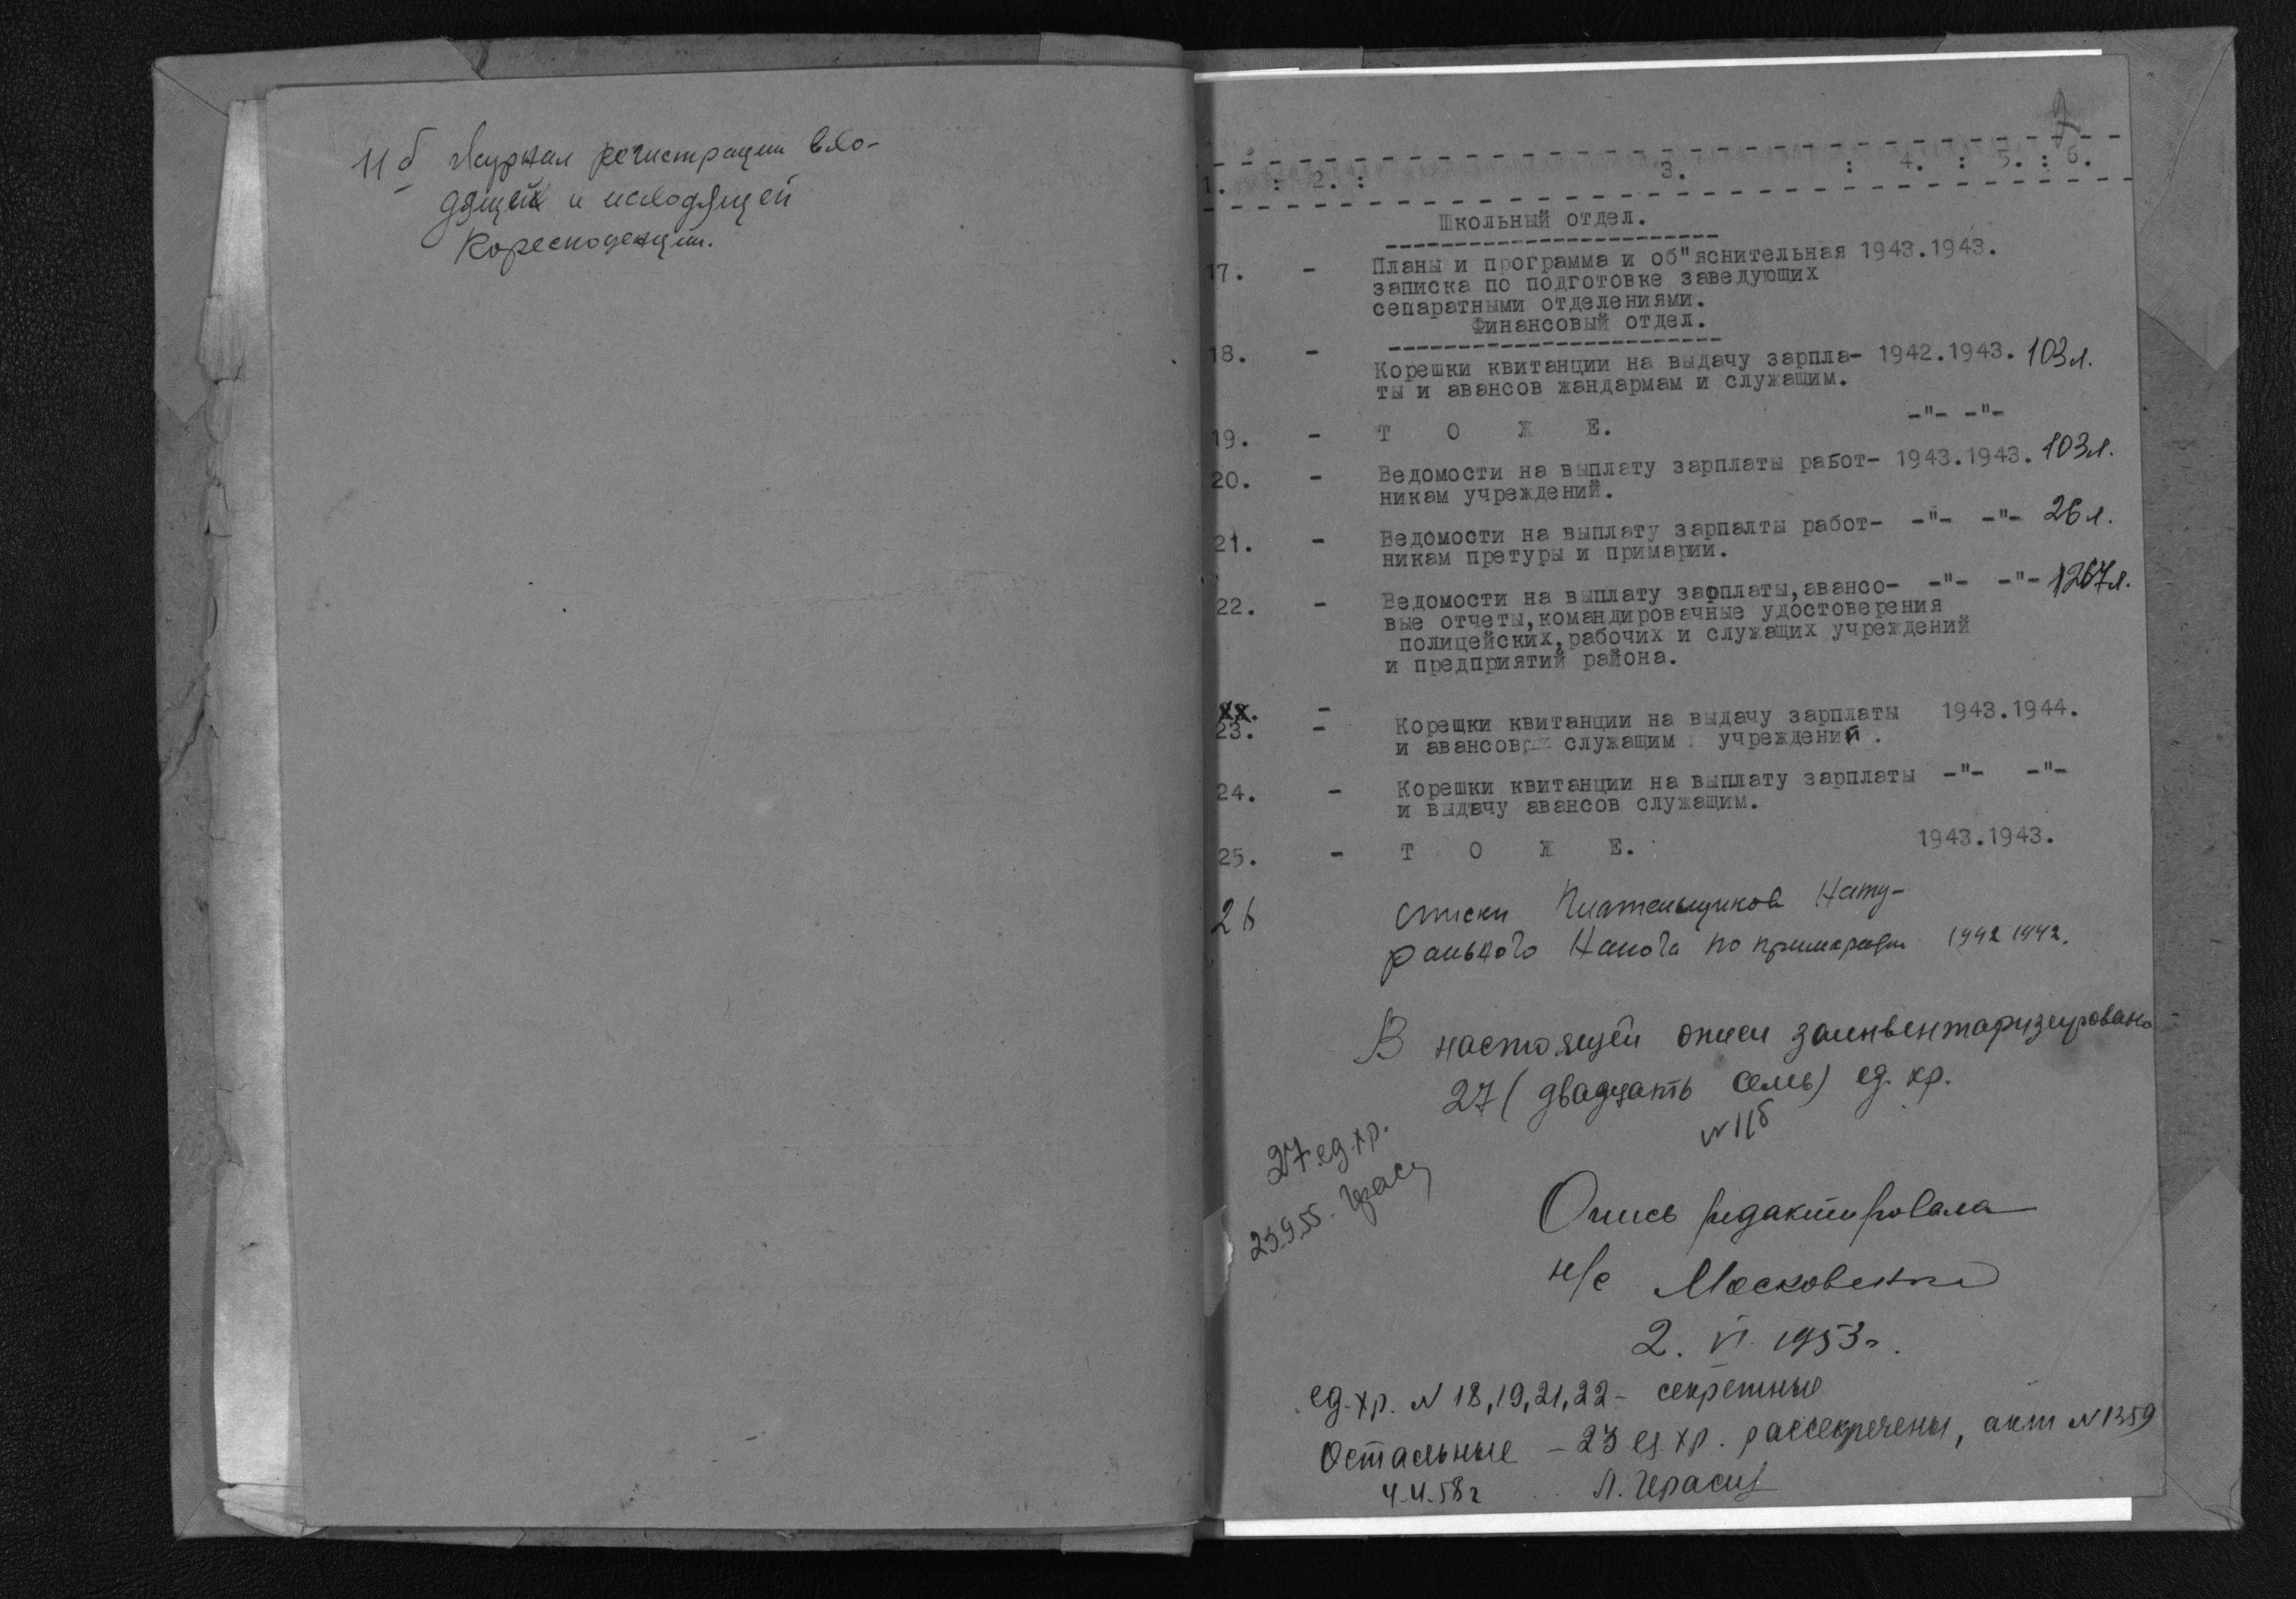 11б Журнал регистрации вхо-
дящей и исходящей
Коресподенции.
2
1. : 2. : 3. : 4. : 5. : 6.
Школьный отдел.
17. - Планы и программа и об"яснительная 1943.1943.
записка по подготовке заведующих
сепаратными отделениями.
Финансовый отдел.
18. - Корешки квитанции на выдачу зарпла- 1942.1943. 103л.
ты и авансов жандармам и служащим.
19. - Т О Ж Е. -"- -"-
20. - Ведомости на выплату зарплаты работ- 1943.1943. 103л.
никам учреждений.
21. - Ведомости на выплату зарпалты работ- -"- -"- 26л.
никам претуры и примарии.
22. - Ведомости на выплату зарплаты,авансо- -"- -"- 1267л.
вые отчеты,командировачные удостоверения
полицейских,рабочих и служащих учреждений
и предприятий района.
хх. -
23. - Корещки квитанции на выдачу зарплаты 1943.1944.
и авансов служащим учреждений.
24. - Корешки квитанции на выплату зарплаты -"- -"-
и выдачу авансов служащим.
25. - Т О Ж Е. 1943.1943.
26 Списки Плательщиков Нату-
рального Налога по примариям 1942 1942.
В настоящей описи заинвентаризировано
27 (двадцать семь) ед. хр.
№11б
27 ед.хр.
23.9.55.
Опись редактировала
н/с
2. VI. 1953г.
ед.хр. № 18,19,21,22 - секретные
Остальные - 23 ед хр. рассекречены, акт №1359